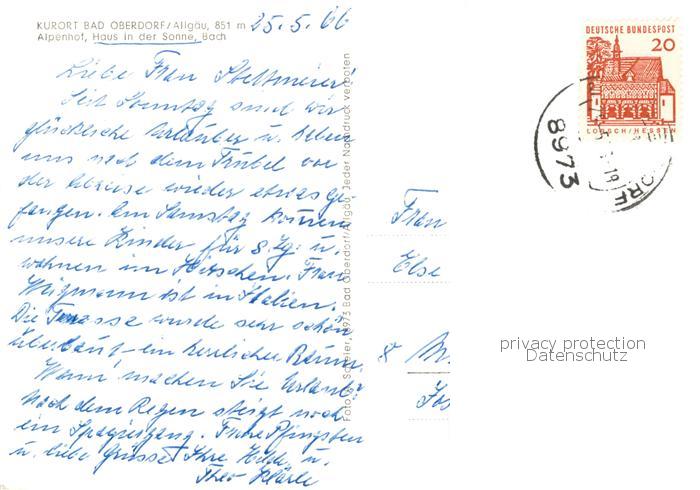 KURORT BAD OBERDORF/Allgäu, 851 m
Alpenhof, Haus in der Sonne, Bach
25.5.66
Liebe Frau
Seit Sonntag sind wir
glückliche Urlauber u. haben
uns nach dem Trubel vor
der Abreise wieder etwas ge-
fangen. Am Samstag kommen
unsere Kinder für 8 Tg. u.
wohnen im Hirschen. Frau
Wigmann ist in Italien.
Die Terrasse wurde sehr schön
überbaut - ein herrlicher Raum.
Wann machen Sie Urlaub?
Nach dem Regen steigt noch
ein Spaziergang. Frohe Pfingsten
u. liebe Grüsse Ihre Hilde u.
Theo
Jeder Nachdruck verboten
8973 Bad Oberdorf/Allgäu
Frau
Else
8 M
DEUTSCHE BUNDESPOST
20
LORSCH/HESSEN
8973
privacy protection
Datenschutz